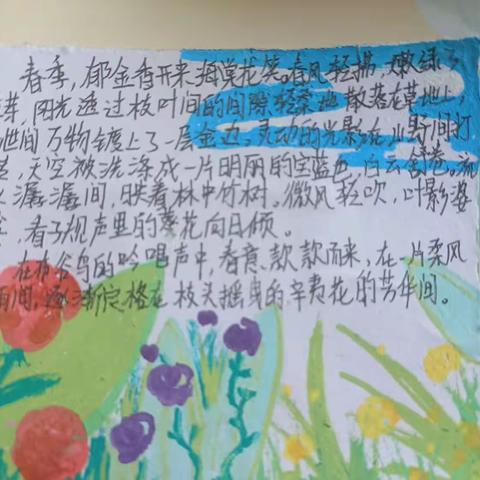 春季，郁金香开来海棠花笑。春风轻拂，嫩绿了
芽，阳光透过枝叶间的间隙轻柔地散落在草地上，
世间万物镀上了一层金边，灵动的光影在山野间打
，天空被洗涤成一片明丽的宝蓝色，白云舒卷。流
潺潺间，映着林中竹树。微风轻吹，叶影婆
，看子规声里的葵花向日倾。
在布谷鸟的吟唱声中，春意款款而来，在一片柔风
雨间，逐渐定格在枝头摇曳的辛夷花的芳华间。